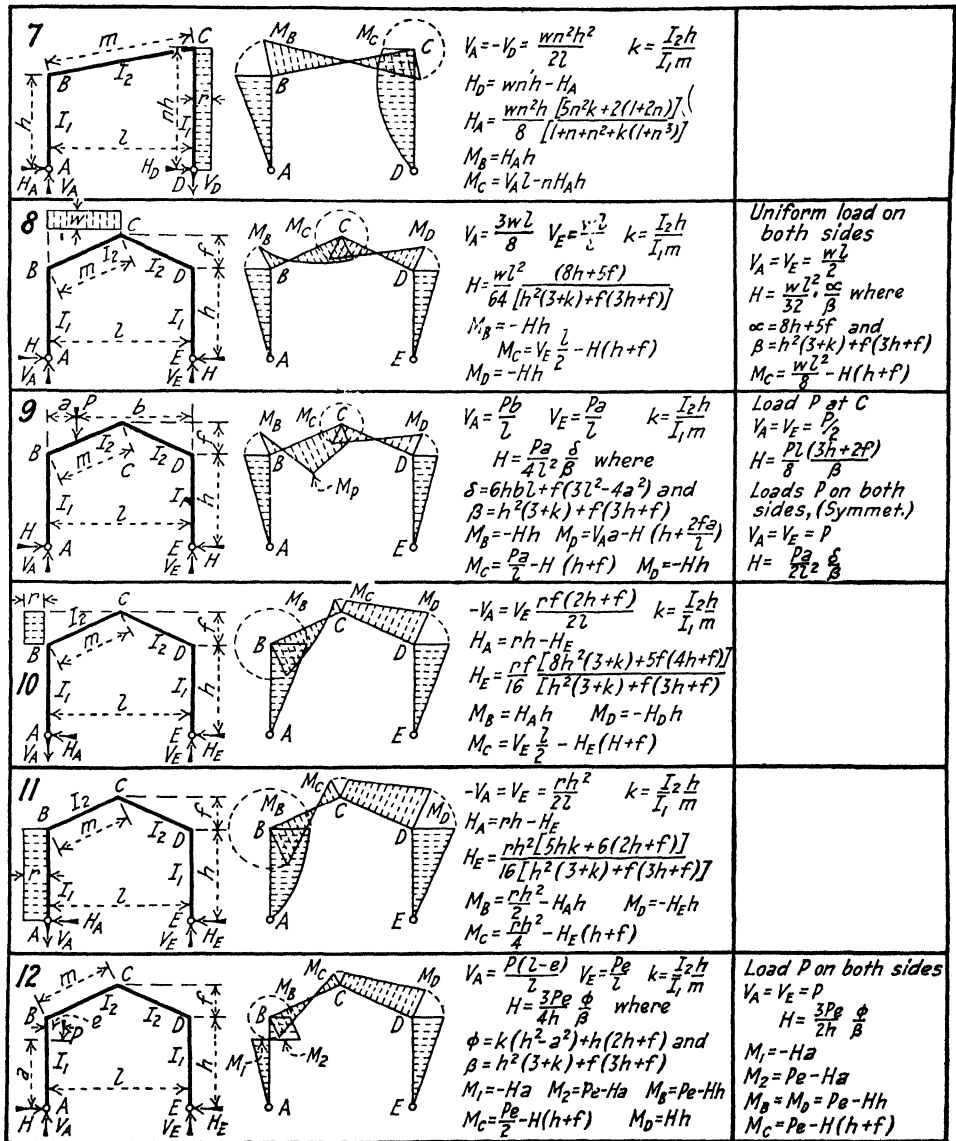 7
m
C
B
I₂
h
I₁
l
nh
I₁
r
A
H_A
V_A
H_D
D
V_D
M_B
M_C
C
B
A
D
V_A=-V_D=wn²h²/2l k=I₂h/I₁m
H_D=wnh-H_A
H_A=wn²h/8 [5n²k+2(1+2n)]/[1+n+n²+k(1+n³)]
M_B=H_Ah
M_C=V_Al-nH_Ah
8
w
C
B
m
I₂
D
f
I₁
l
I₁
h
H
A
V_A
E
H
V_E
M_B
M_C
C
M_D
B
D
A
E
V_A=3wl/8 V_E= k=I₂h/I₁m
H=wl²/64 (8h+5f)/[h²(3+k)+f(3h+f)]
M_B=-Hh
M_C=V_E l/2-H(h+f)
M_D=-Hh
Uniform load on
both sides
V_A=V_E=wl/2
H=wl²/32·α/β where
α=8h+5f and
β=h²(3+k)+f(3h+f)
M_C=wl²/8-H(h+f)
9
a
P
b
I₂
I₂
f
B
m
C
D
I₁
l
I₁
h
H
A
V_A
E
H
V_E
M_B
M_C
C
M_D
B
D
M_P
A
E
V_A=Pb/l V_E=Pa/l k=I₂h/I₁m
H=Pa/4l² δ/β where
δ=6hbl+f(3l²-4a²) and
β=h²(3+k)+f(3h+f)
M_B=-Hh M_P=V_Aa-H(h+2fa/l)
M_C=Pa/l-H(h+f) M_D=-Hh
Load P at C
V_A=V_E=P/2
H=Pl/8 (3h+2f)/β
Loads P on both
sides, (Symmet.)
V_A=V_E=P
H=Pa/2l² δ/β
10
r
C
I₂
B
m
I₂
D
f
I₁
l
I₁
h
A
V_A
H_A
E
V_E
H_E
M_B
M_C
M_D
B
C
D
A
E
-V_A=V_E rf(2h+f)/2l k=I₂h/I₁m
H_A=rh-H_E
H_E=rf/16 [8h²(3+k)+5f(4h+f)]/[h²(3+k)+f(3h+f)
M_B=H_Ah M_D=-H_Dh
M_C=V_E l/2-H_E(H+f)
11
C
B
I₂
m
I₂
D
f
r
I₁
l
I₁
h
A
V_A
H_A
E
V_E
H_E
M_B
M_C
M_D
B
C
D
A
E
-V_A=V_E=rh²/2l k=I₂h/I₁m
H_A=rh-H_E
H_E=rh²[5hk+6(2h+f)]/16[h²(3+k)+f(3h+f)]
M_B=rh²/2-H_Ah M_D=-H_Eh
M_C=rh²/4-H_E(h+f)
12
m
C
B
I₂
I₂
D
f
e
P
a
I₁
l
I₁
h
H
A
V_A
E
H
V_E
M_B
M_C
M_D
B
C
D
M₁
M₂
A
E
V_A=P(l-e)/l V_E=Pe/l k=I₂h/I₁m
H=3Pe/4h φ/β where
φ=k(h²-a²)+h(2h+f) and
β=h²(3+k)+f(3h+f)
M₁=-Ha M₂=Pe-Ha M_B=Pe-Hh
M_C=Pe/2-H(h+f) M_D=Hh
Load P on both sides
V_A=V_E=P
H=3Pe/2h φ/β
M₁=-Ha
M₂=Pe-Ha
M_B=M_D=Pe-Hh
M_C=Pe-H(h+f)